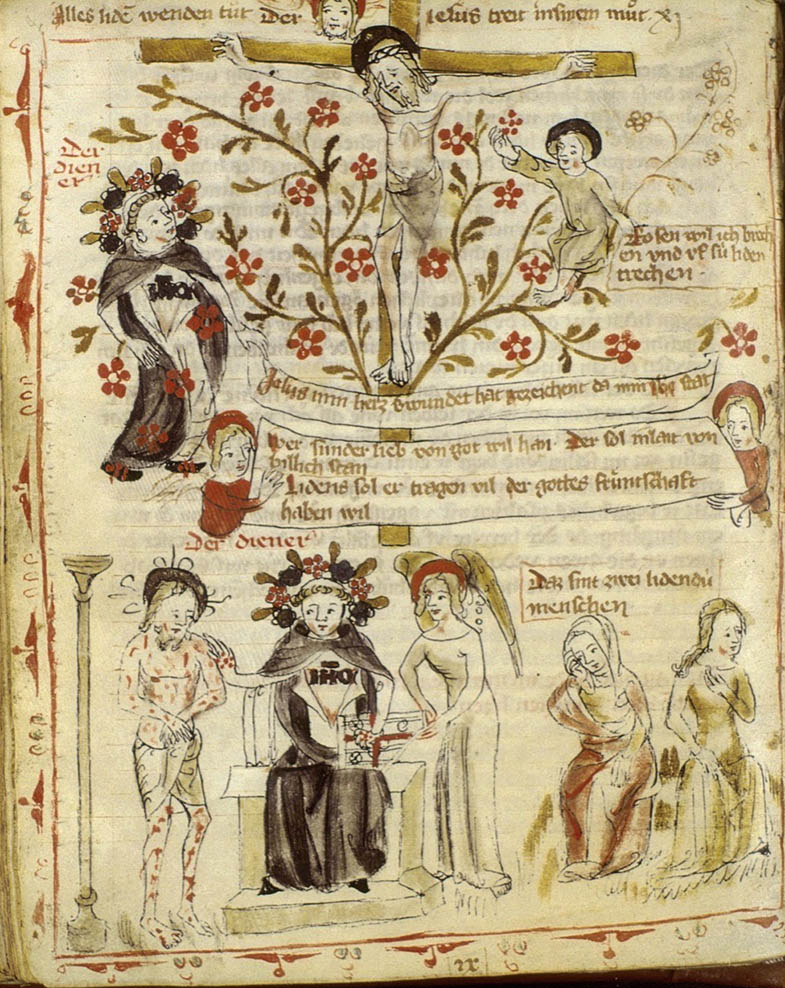 Alles lidē wenden tůt Der Jesus treit in sinem můt. xj
Der
dien
er
Rosen wil ich brech
en vnd vf sú liden
trechen.
Jesus min herz gewundet hat gezeichent da min stat
Wer sunder lieb von got wil han. Der sol von
billich stan
Lidens sol er tragen vil der gottes frúntschaft
haben wil
Der diener
IHC
Daz sint zwei lidendú
menschen